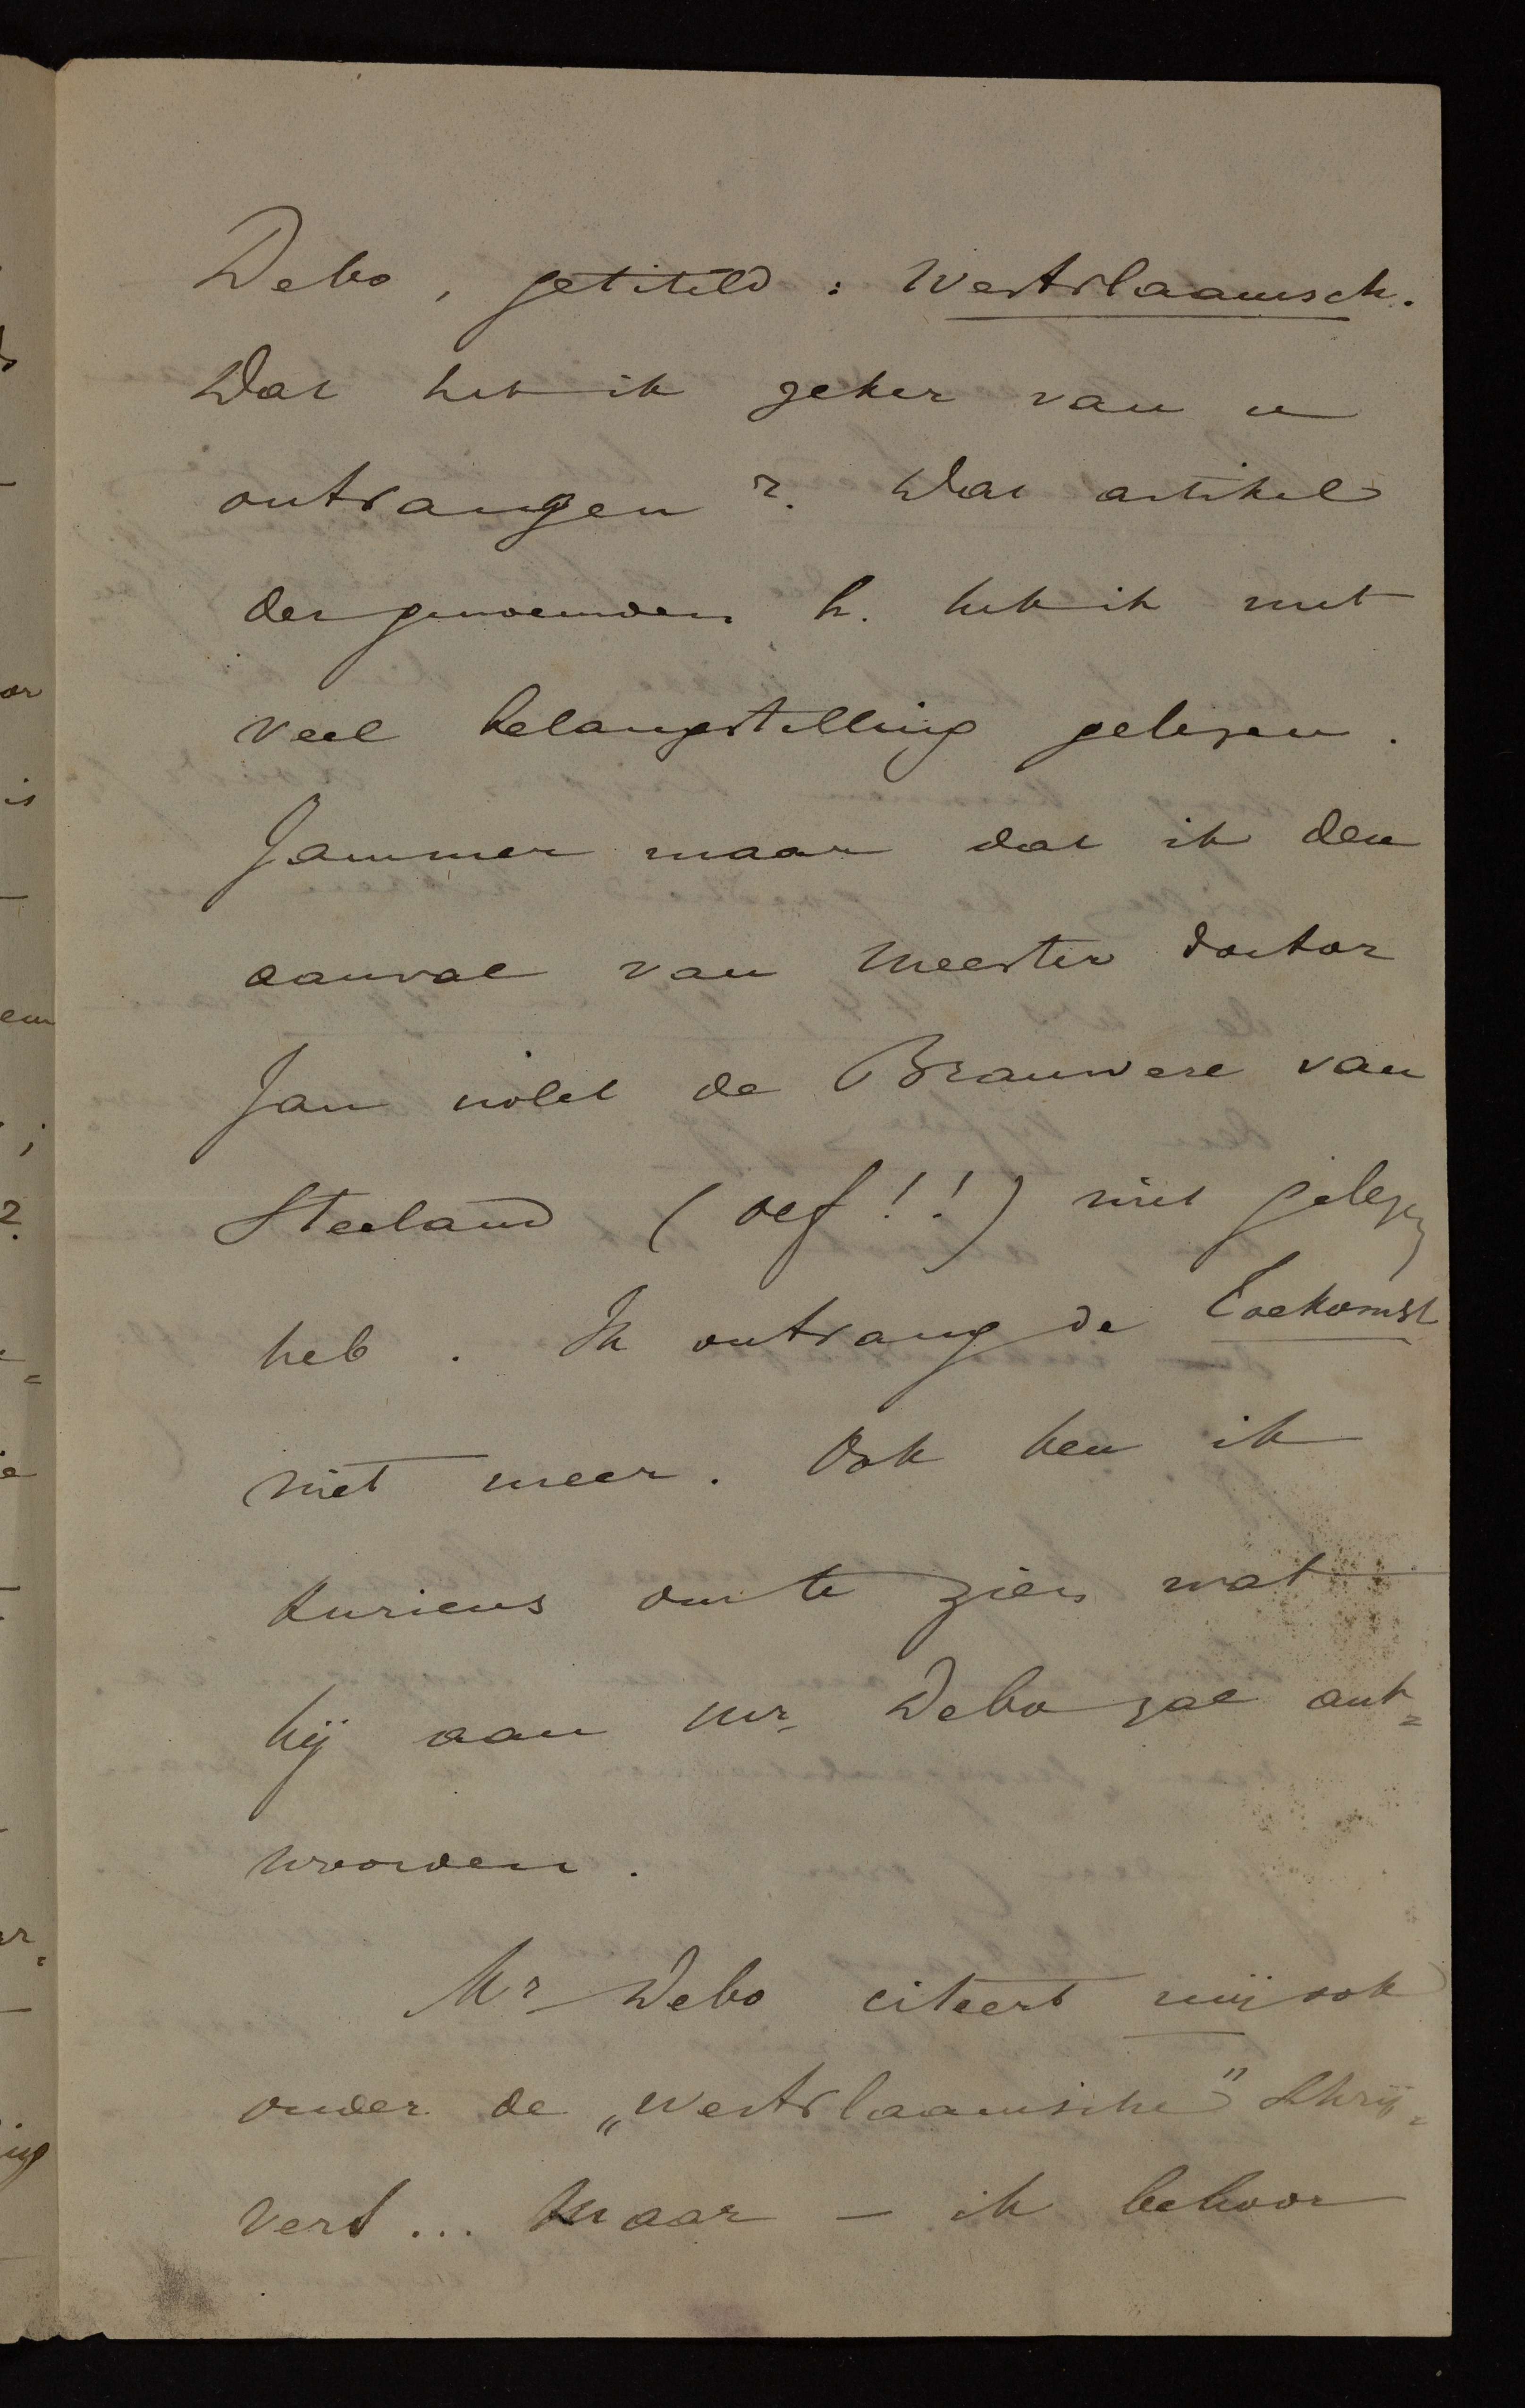 Debo, getiteld: Westvlaamsch.
Dat heb ik zeker van u
ontvangen ?. Dat artikel
der genoemden h. heb ik met
veel belangstelling gelezen.
Jammer maar dat ik den
aanval van Meester doctor
Jan nolet de Brauwere van
Steeland (oef!!) niet gelezen
heb. Ik ontvang de Toekomst
niet meer. Ook ben ik
kurieus om te zien wat
hij aan Mr. Debo zal ant=
woorden.
Mr Debo citeert mij ook
onder de „westvlaamsche" schrij=
vers... Maar — ik behoor